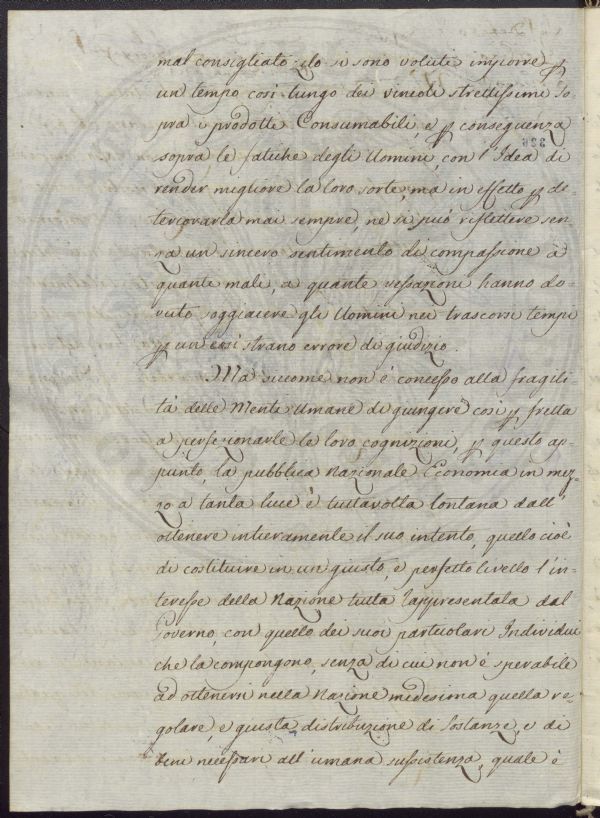 mal consigliato zelo si sono voluti imporre ꝑ
un tempo così lungo dei vincoli strettissimi so-
pra i prodotti Consumabili, e ꝑ conseguenza
sopra le fatiche degli Uomini, con l'Idea di
render migliore la loro sorte, ma in effetto ꝑ de-
teriorarla mai sempre, nè si può riflettere sen-
za un sincero sentimento di compassione a
quante mali, a quante vessazioni hanno do-
vuto soggiacere gli Uomini nei trascorsi tempi
ꝑ un così strano errore di giudizio.
Ma siccome non è concesso alla fragili-
tà delle Menti Umane di giungere così ꝑ fretta
a perfezionarle le loro cognizioni, ꝑ questo ap-
punto, la pubblica Nazionale Economia in mez-
zo a tanta luce è tuttavolta lontana dall'
ottenere intieramente il suo intento, quello cioè
di costituire in un giusto, e perfetto livello l'in-
teresse della Nazione tutta rappresentata dal
Governo, con quello dei suoi particolari Individui
che la compongono, senza di cui non è sperabile
ad ottenersi nella Nazione medesima quella re-
golare, e giusta distribuzione di sostanze, e di
beni necessari all'umana sussistenza, quale è